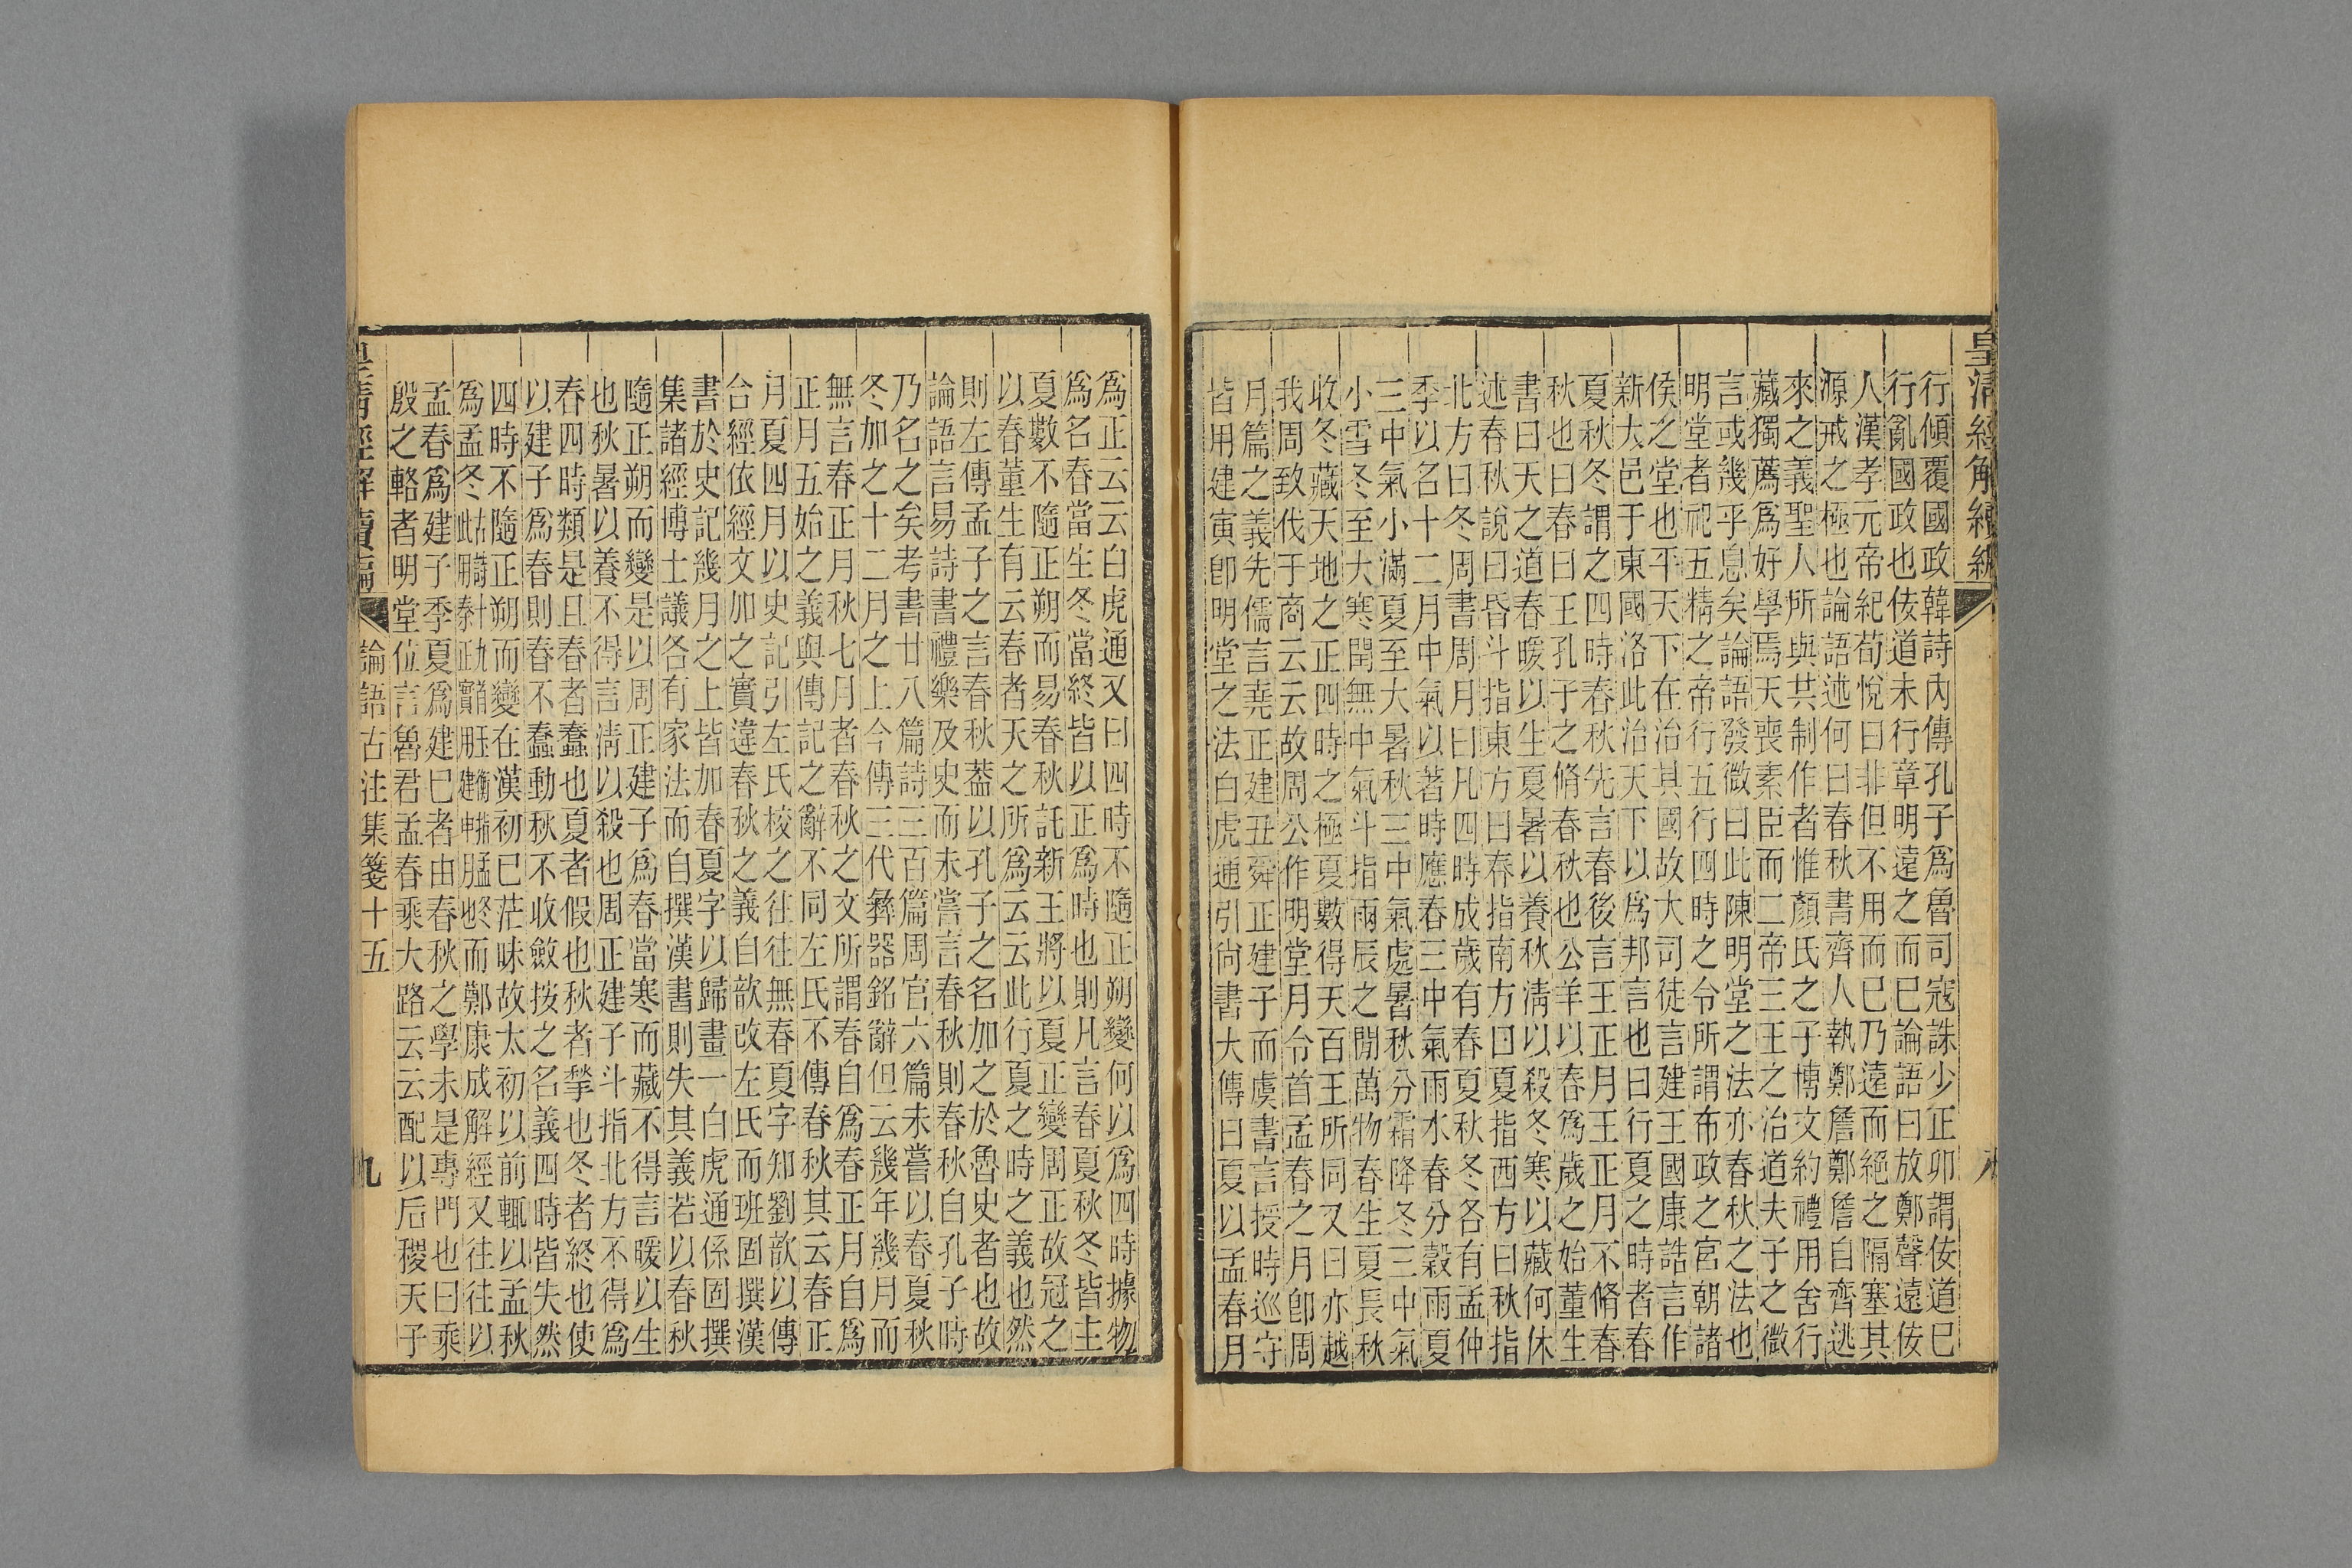 皇清經解續編
八
行傾覆國政韓詩內傳孔子爲魯司寇誅少正卯謂佞道巳
行亂國政也佞道未行章明遠之而巳論語曰放鄭聲遠佞
人漢孝元帝紀荀悅曰非但不用而巳乃遠而絕之隔塞其
源戒之極也論語述何曰春秋書齊人執鄭詹鄭詹自齊逃
來之義聖人所與共制作者惟顏氏之子博文約禮用舍行
藏獨薦爲好學焉天喪素臣而二帝三王之治道夫子之微
言或幾乎息矣論語發微曰此陳明堂之法亦春秋之法也
明堂者祀五精之帝行五行四時之令所謂布政之宮朝諸
侯之堂也平天下在治其國故大司徒言建王國康誥言作
新大邑于東國洛此治天下以爲邦言也曰行夏之時者春
夏秋冬謂之四時春秋先言春後言王正月王正月不脩春
秋也曰春曰王孔子之脩春秋也公羊以春爲歲之始董生
書曰天之道春暖以生夏暑以養秋淸以殺冬寒以藏何休
述春秋說曰昏斗指東方曰春指南方曰夏指西方曰秋指
北方曰冬周書周月曰凡四時成歲有春夏秋冬各有孟仲
季以名十二月中氣以著時應春三中氣雨水春分穀雨夏
三中氣小滿夏至大暑秋三中氣處暑秋分霜降冬三中氣
小雪冬至大寒閏無中氣斗指兩辰之閒萬物春生夏長秋
收冬藏天地之正四時之極夏數得天百王所同又曰亦越
我周致伐于商云云故周公作明堂月令首孟春之月卽周
月篇之義先儒言堯正建丑舜正建子而虞書言授時巡守
皆用建寅卽明堂之法白虎通引尙書大傳曰夏以孟春月
爲正云云白虎通又曰四時不隨正朔變何以爲四時據物
爲名春當生冬當終皆以正爲時也則凡言春夏秋冬皆主
夏數不隨正朔而易春秋託新王將以夏正變周正故冠之
以春董生有云春者天之所爲云云此行夏之時之義也然
則左傳孟子之言春秋葢以孔子之名加之於魯史者也故
論語言易詩書禮樂及史而未嘗言春秋則春秋自孔子時
乃名之矣考書廿八篇詩三百篇周官六篇未嘗以春夏秋
冬加之十二月之上今傳三代彝器銘辭但云幾年幾月而
無言春正月秋七月者春秋之文所謂春自爲春正月自爲
正月五始之義與傳記之辭不同左氏不傳春秋其云春正
月夏四月以史記引左氏校之往往無春夏字知劉歆以傳
合經依經文加之實違春秋之義自歆改左氏而班固撰漢
書於史記幾月之上皆加春夏字以歸畫一白虎通係固撰
集諸經博士議各有家法而自撰漢書則失其義若以春秋
隨正朔而變是以周正建子爲春當寒而藏不得言暖以生
也秋暑以養不得言淸以殺也周正建子斗指北方不得爲
春四時類是且春者蠢也夏者假也秋者揫也冬者終也使
以建子爲春則春不蠢動秋不收斂按之名義四時皆失然
四時不隨正朔而變在漢初已茫昧故太初以前輒以孟秋
爲孟冬古詩十九首玉衡指孟冬此用秦正實用建申月也而鄭康成解經又往往以
孟春爲建子季夏爲建巳者由春秋之學未是專門也曰乘
殷之輅者明堂位言魯君孟春乘大路云云配以后稷天子
皇清經解續編
論語古注集箋十五
九